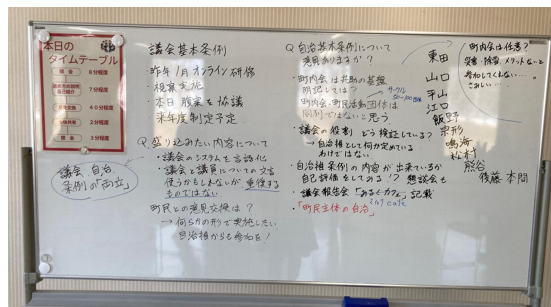 本日の
タイムテーブル
開会 8分程度
7分程度
40分程度
2分程度
閉会 3分程度
議会 自治
条例の「両立」
議会基本条例
昨年1月オンライン研修
・視察実施
・本日 骨案を協議
来年度制定予定
Q 盛り込みたい内容について
・議会のシステムを言語化
・議会と議員についての文言
使うかもしれないが重複する
ものではない
町民との意見交換は?
→何らかの形で実施したい
自治推からも参加を!
Q 自治基本条例について
意見ありますか?
・町内会は共助の基盤
明記しては?
サークル
町内会・町民活動団体は
同列ではないと思う
・議会の役割 どう検証している?
→自治推として何か定めている
わけではない
・自治推 条例の内容が出来ているか
自己評価をしてみる? 懇談会も
・議会報告会「あるくカフェ」記載
cafe
・「町民主体の自治」
東田
山口
平山
江口
飯野
鳴海
松村
熊谷
後藤 本間
町内会は任意?
災害・除雪 メリットないと
参加してくれない…。
さみしい…。